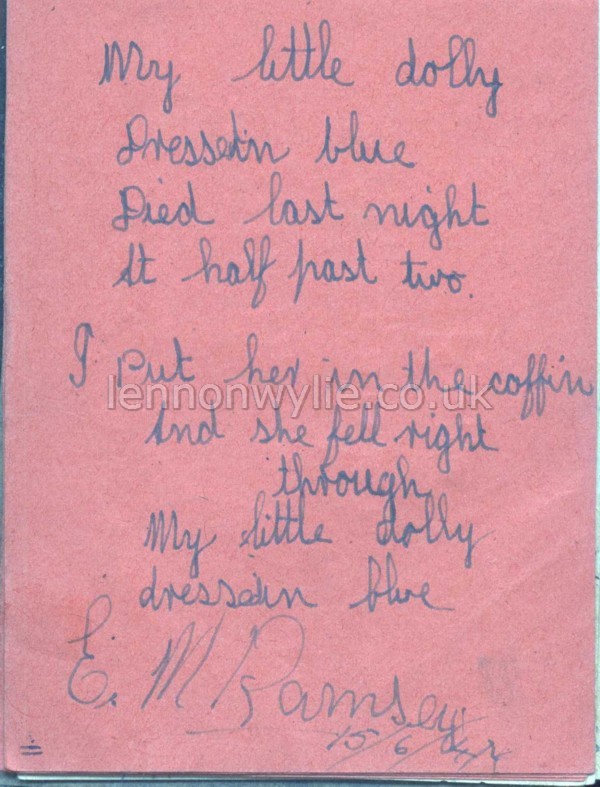 My little dolly
Dressed in blue
Died last night
At half past two.
I Put her in the coffin
lennonwylie.co.uk
And she fell right
through
My little dolly
dressed in blue
E. M Ramsey
15/6/44